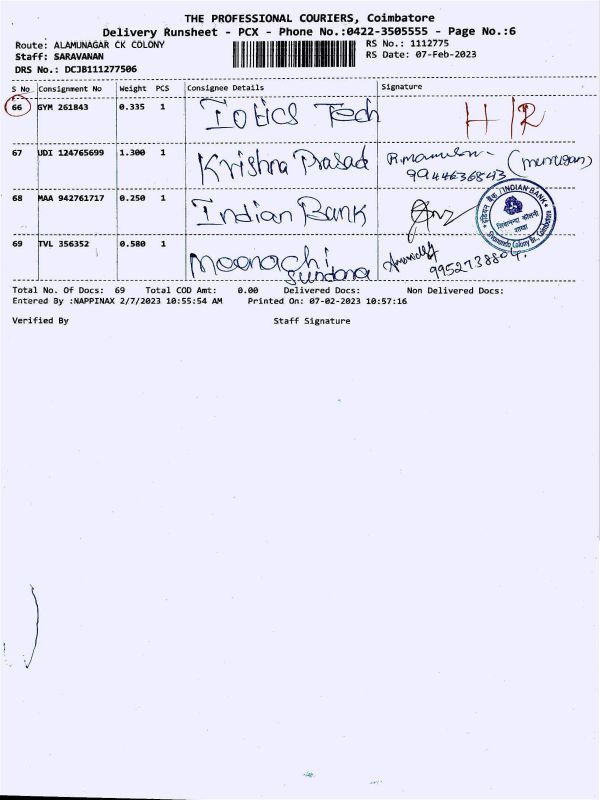 THE PROFESSIONAL COURIERS, Coimbatore
Delivery Runsheet - PCX - Phone No.:0422-3505555 - Page No.:6
Route: ALAMUNAGAR CK COLONY
RS No.: 1112775
Staff: SARAVANAN
RS Date: 07-Feb-2023
DRS No.: DCJB111277506
S No Consignment No Weight PCS Consignee Details Signature
66 GYM 261843 0.335 1 Iotics Tech H/R
67 UDI 124765699 1.300 1 Krishna Prasad (murugan)
9944636843
68 MAA 942761717 0.250 1 Indian Bank
INDIAN BANK
इंडियन बैंक
शाखा
Sivananda Colony Br., Coimbatore
69 TVL 356352 0.580 1 Moonachi
Sundara 9952738804
Total No. Of Docs: 69 Total COD Amt: 0.00 Delivered Docs: Non Delivered Docs:
Entered By :NAPPINAX 2/7/2023 10:55:54 AM Printed On: 07-02-2023 10:57:16
Verified By Staff Signature